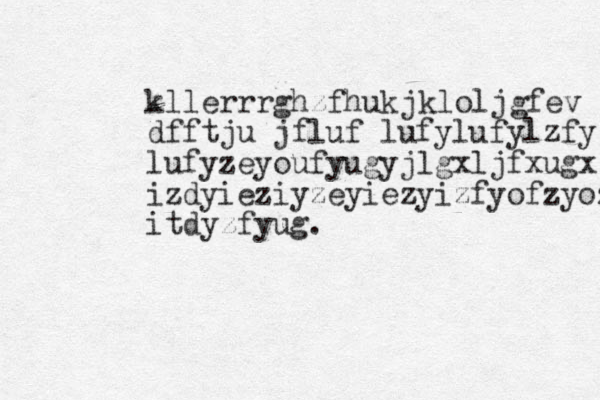 kllerrrghzfhukjkloljgfev
dfftju jfluf lufylufylzfy
lufyzeyoufyugyjlgxljfxugx
izdyieziyzeyiezyizfyofzyoz
itdyzfyug.